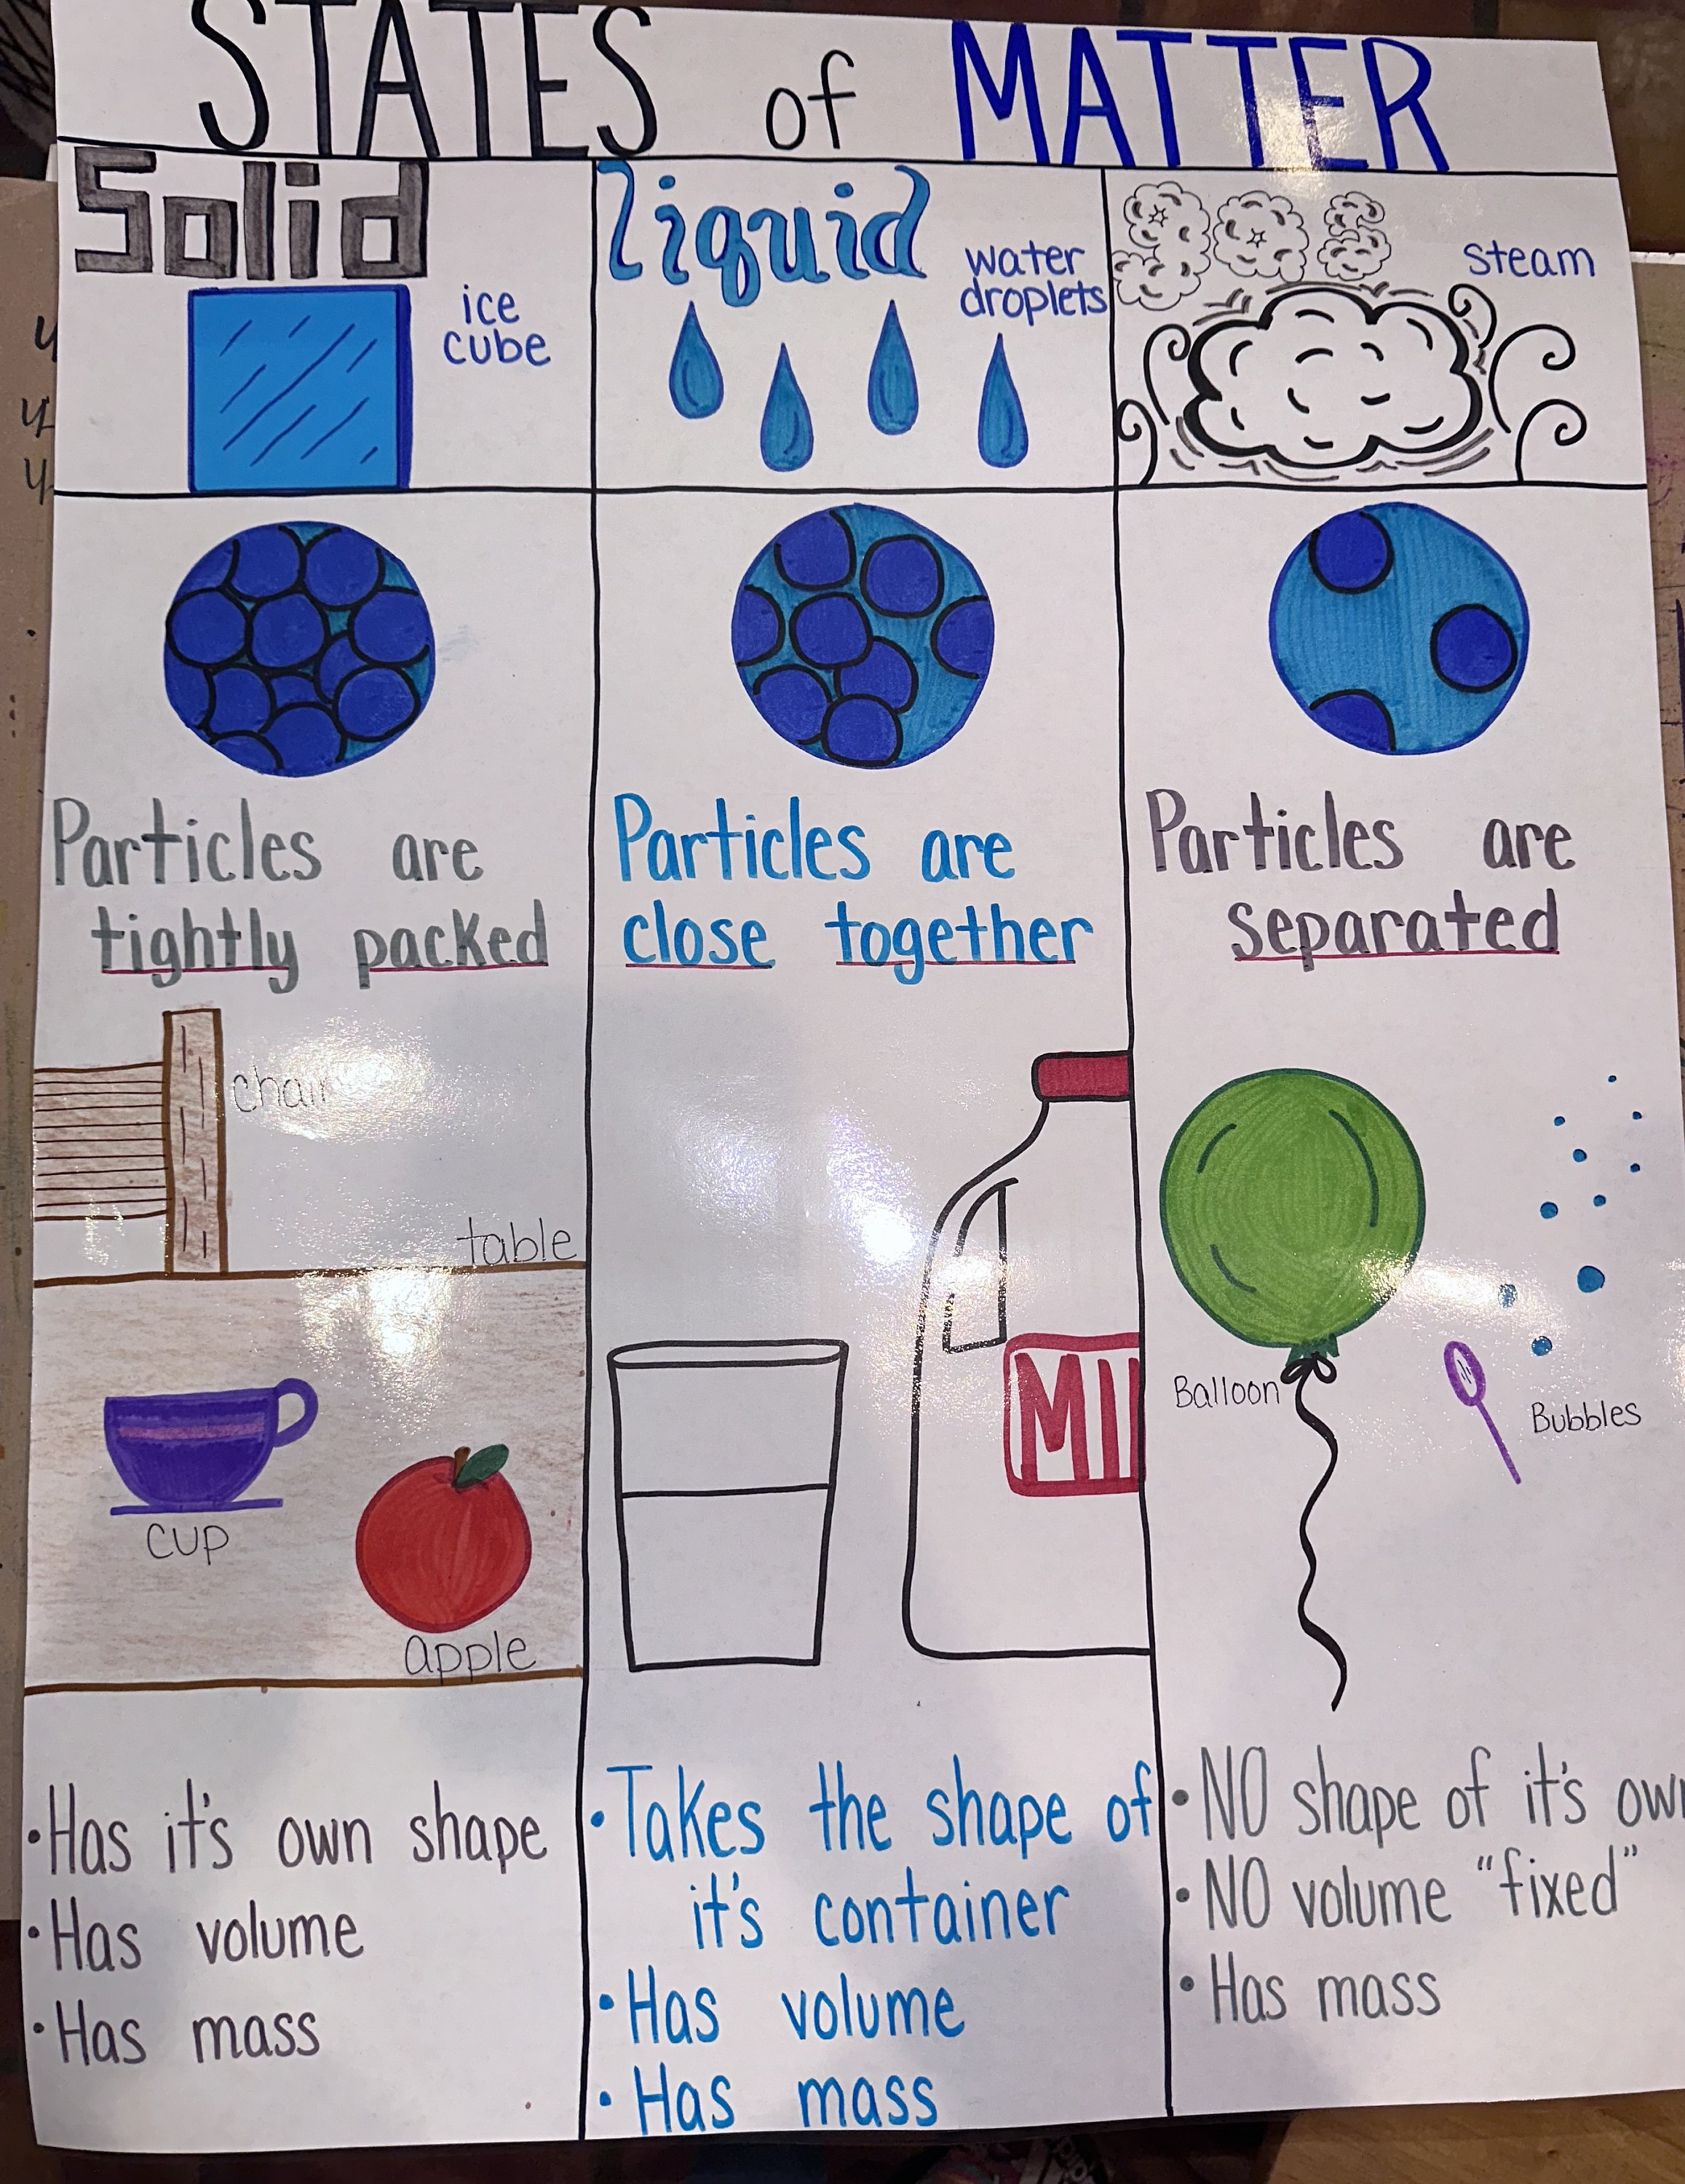 STATES of MATTER
Solid
ice
cube
liquid
water
droplets
steam
Particles are
tightly packed
Particles are
close together
Particles are
separated
chair
table
cup
apple
MI
Balloon
Bubbles
•Has it's own shape
•Has volume
•Has mass
•Takes the shape of
it's container
•Has volume
•Has mass
•NO shape of it's own
•NO volume "fixed"
•Has mass